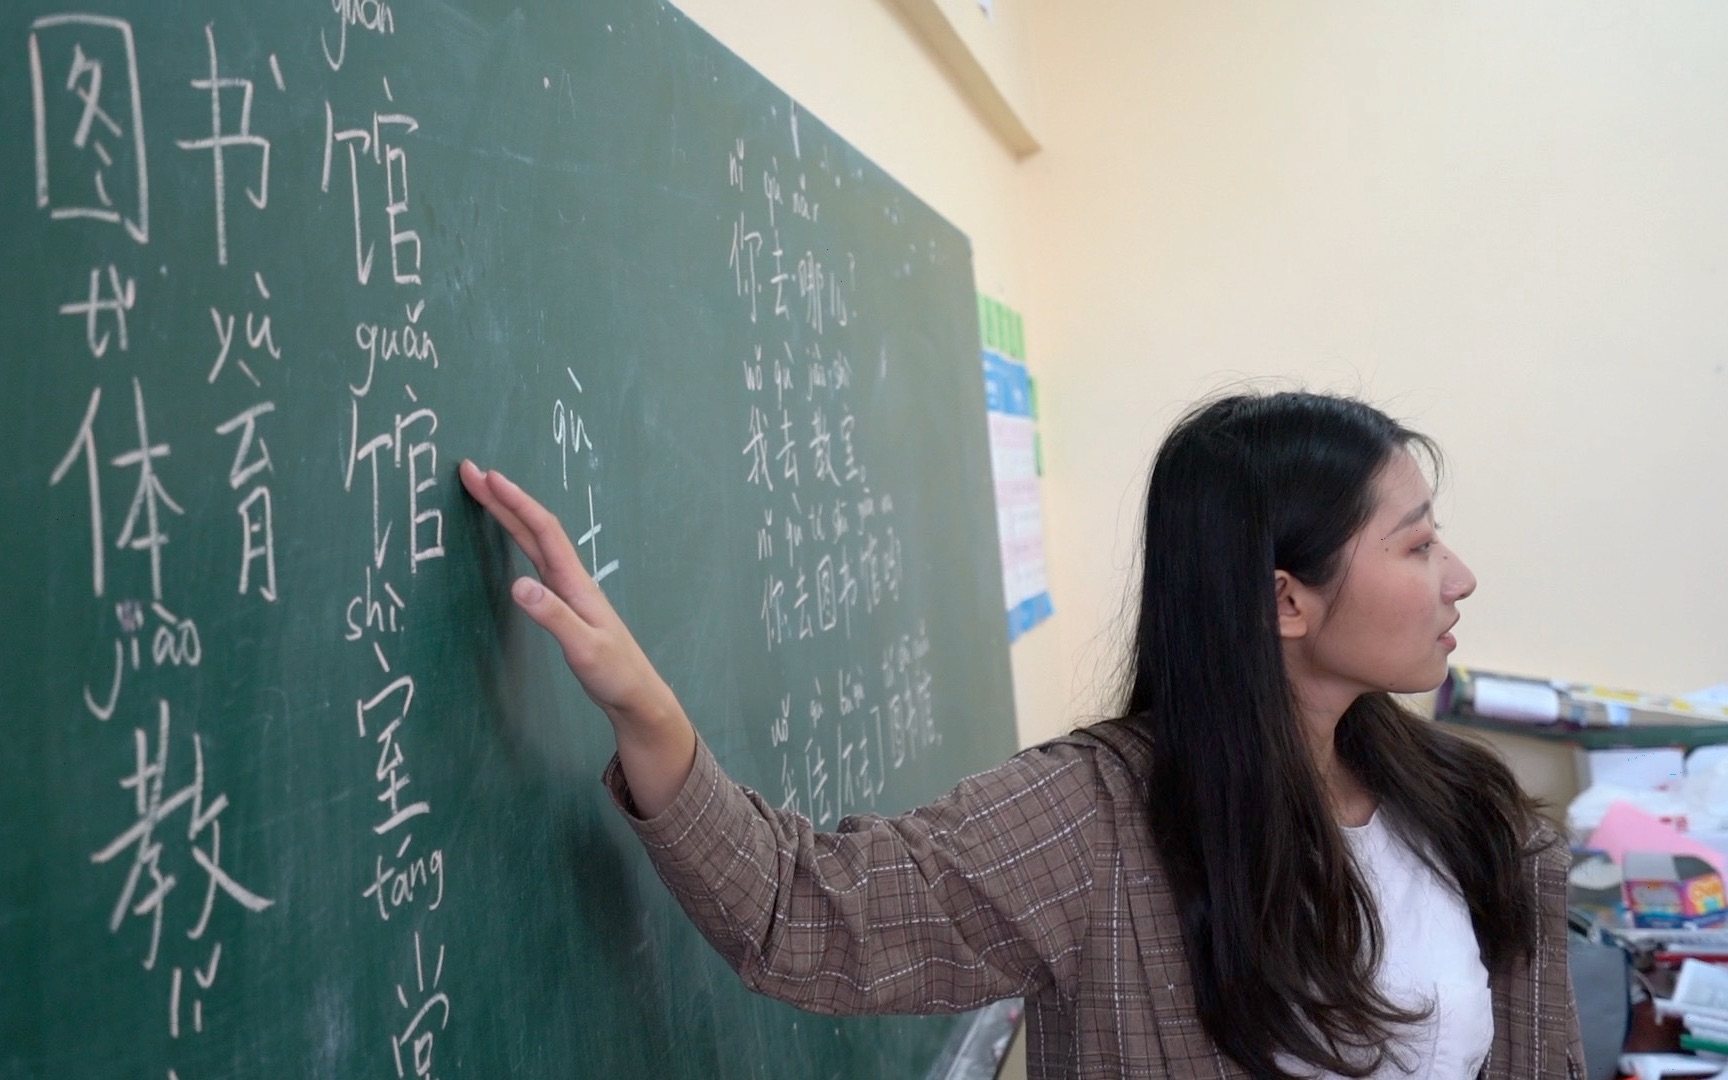 guǎn
图书馆
tǐ yù guǎn
体育馆
jiào shì
教室
lǐ táng
堂
qù
nǐ qù nǎr
你去哪儿?
wǒ qù jiào shì
我去教室。
nǐ qù tú shū guǎn ma
你去图书馆吗
wǒ qù bú qù tú shū guǎn
我[去/不去]图书馆。